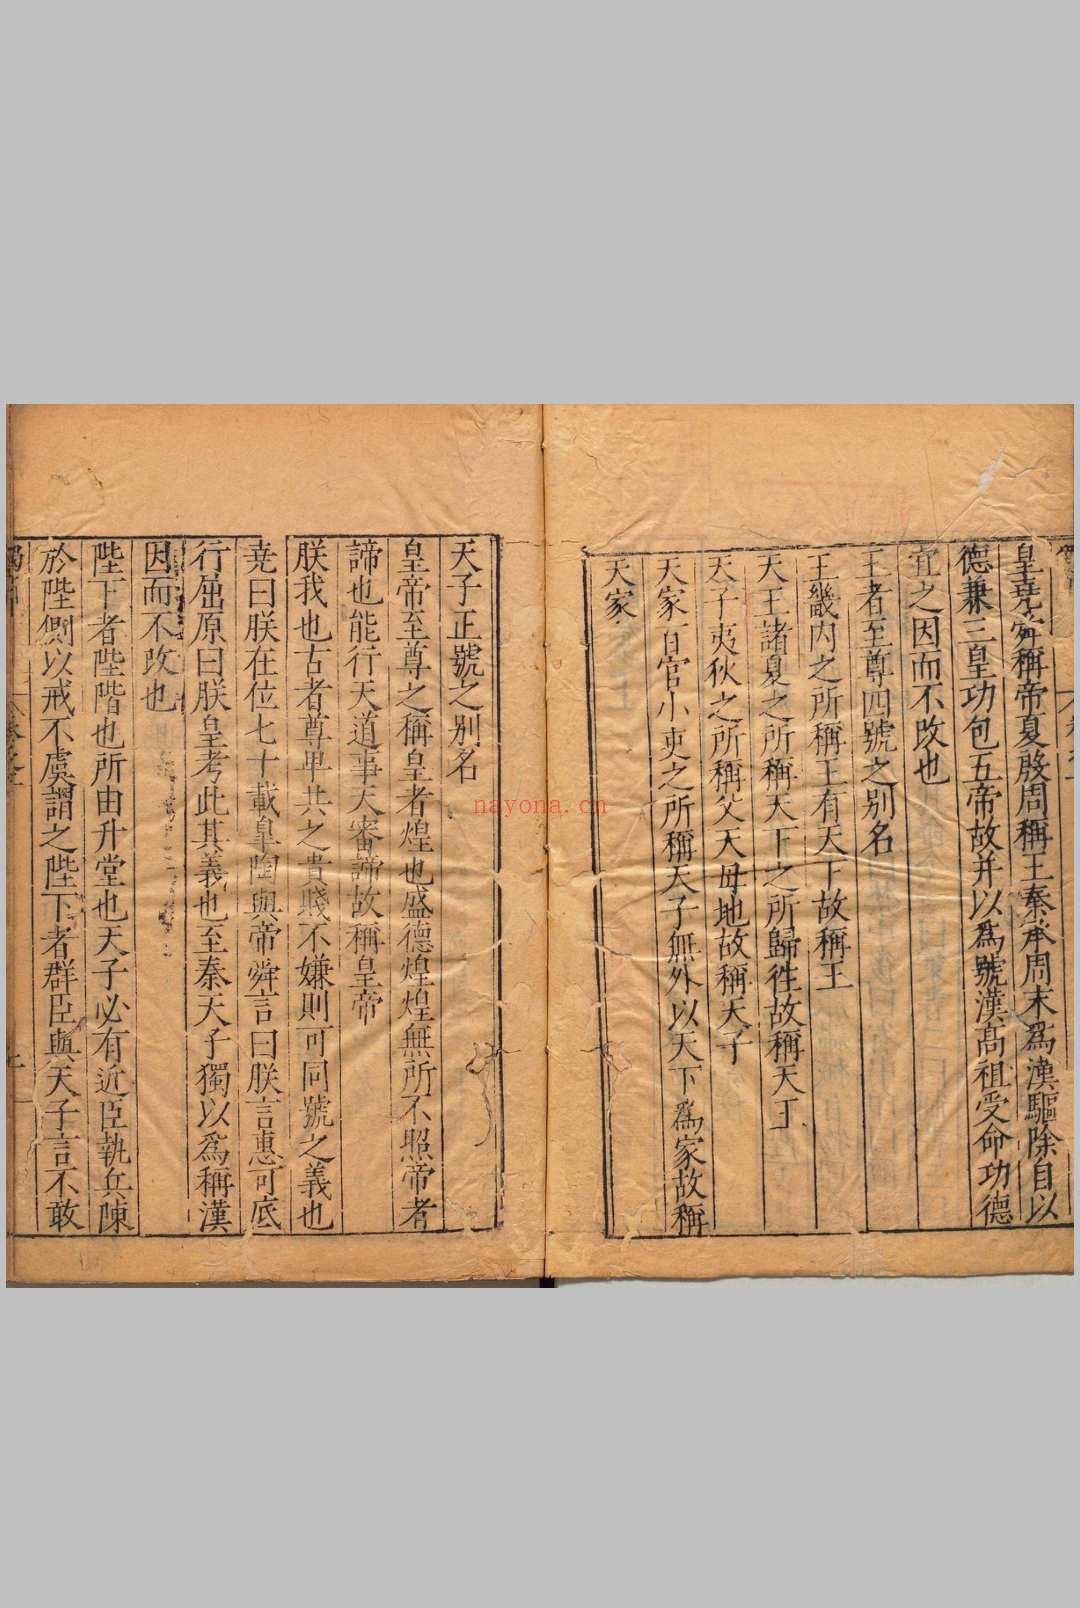 皇堯舜稱帝夏殷周稱王秦承周末爲漢驅除自以
德兼三皇功包五帝故并以爲號漢高祖受命功德
宜之因而不改也
王者至尊四號之别名
王畿内之所稱王有天下故稱王
天王諸夏之所稱天下之所歸徃故稱天王
天子夷狄之所稱父天母地故稱天子
天家百官小吏之所稱天子無外以天下爲家故稱
天家
天子正號之别名
皇帝至尊之稱皇者煌也盛德煌煌無所不照帝者
諦也能行天道事天審諦故稱皇帝
朕我也古者尊卑共之貴賤不嫌則可同號之義也
堯曰朕在位七十載皐陶與帝舜言曰朕言惠可底
行屈原曰朕皇考此其義也至秦天子獨以爲稱漢
因而不改也
陛下者陛階也所由升堂也天子必有近臣執兵陳
於陛側以戒不虞謂之陛下者群臣與天子言不敢
nayona.cn